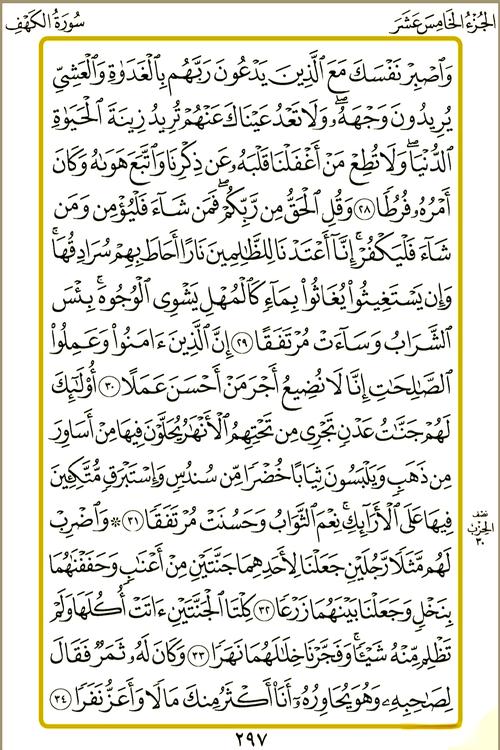 الجُزْءُ الخَامِسَ عَشَرَ
سُورَةُ الكَهْفِ
وَٱصْبِرْ نَفْسَكَ مَعَ ٱلَّذِينَ يَدْعُونَ رَبَّهُم بِٱلْغَدَوٰةِ وَٱلْعَشِىِّ
يُرِيدُونَ وَجْهَهُۥۖ وَلَا تَعْدُ عَيْنَاكَ عَنْهُمْ تُرِيدُ زِينَةَ ٱلْحَيَوٰةِ
ٱلدُّنْيَاۖ وَلَا تُطِعْ مَنْ أَغْفَلْنَا قَلْبَهُۥ عَن ذِكْرِنَا وَٱتَّبَعَ هَوَىٰهُ وَكَانَ
أَمْرُهُۥ فُرُطًا ٢٨ وَقُلِ ٱلْحَقُّ مِن رَّبِّكُمْۖ فَمَن شَآءَ فَلْيُؤْمِن وَمَن
شَآءَ فَلْيَكْفُرْۚ إِنَّآ أَعْتَدْنَا لِلظَّٰلِمِينَ نَارًا أَحَاطَ بِهِمْ سُرَادِقُهَاۚ
وَإِن يَسْتَغِيثُوا۟ يُغَاثُوا۟ بِمَآءٍ كَٱلْمُهْلِ يَشْوِى ٱلْوُجُوهَۚ بِئْسَ
ٱلشَّرَابُ وَسَآءَتْ مُرْتَفَقًا ٢٩ إِنَّ ٱلَّذِينَ ءَامَنُوا۟ وَعَمِلُوا۟
ٱلصَّٰلِحَٰتِ إِنَّا لَا نُضِيعُ أَجْرَ مَنْ أَحْسَنَ عَمَلًا ٣٠ أُو۟لَٰٓئِكَ
لَهُمْ جَنَّٰتُ عَدْنٍ تَجْرِى مِن تَحْتِهِمُ ٱلْأَنْهَٰرُ يُحَلَّوْنَ فِيهَا مِنْ أَسَاوِرَ
مِن ذَهَبٍ وَيَلْبَسُونَ ثِيَابًا خُضْرًا مِّن سُندُسٍ وَإِسْتَبْرَقٍ مُّتَّكِـِٔينَ
فِيهَا عَلَى ٱلْأَرَآئِكِۚ نِعْمَ ٱلثَّوَابُ وَحَسُنَتْ مُرْتَفَقًا ٣١ ۞ وَٱضْرِبْ
نصف
الحزب
٣٠
لَهُم مَّثَلًا رَّجُلَيْنِ جَعَلْنَا لِأَحَدِهِمَا جَنَّتَيْنِ مِنْ أَعْنَٰبٍ وَحَفَفْنَٰهُمَا
بِنَخْلٍ وَجَعَلْنَا بَيْنَهُمَا زَرْعًا ٣٢ كِلْتَا ٱلْجَنَّتَيْنِ ءَاتَتْ أُكُلَهَا وَلَمْ
تَظْلِم مِّنْهُ شَيْـًٔاۚ وَفَجَّرْنَا خِلَٰلَهُمَا نَهَرًا ٣٣ وَكَانَ لَهُۥ ثَمَرٌ فَقَالَ
لِصَٰحِبِهِۦ وَهُوَ يُحَاوِرُهُۥٓ أَنَا۠ أَكْثَرُ مِنكَ مَالًا وَأَعَزُّ نَفَرًا ٣٤
٢٩٧